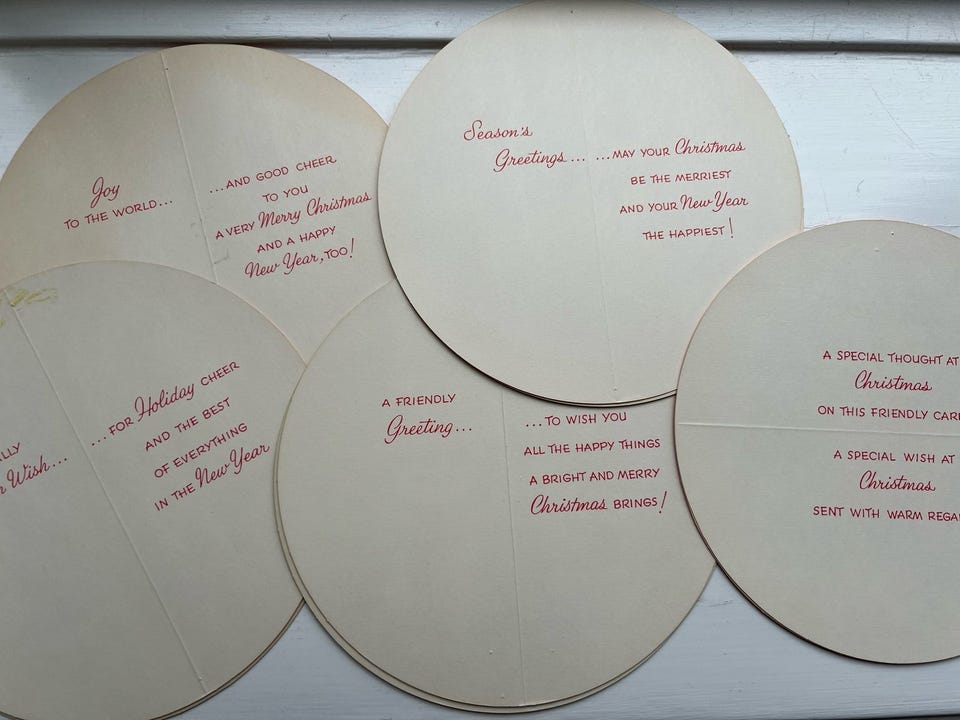 Joy
TO THE WORLD...
...AND GOOD CHEER
TO YOU
A VERY Merry Christmas
AND A HAPPY
New Year, TOO!
Season's
Greetings...
...MAY YOUR Christmas
BE THE MERRIEST
AND YOUR New Year
THE HAPPIEST!
Wish...
...FOR Holiday CHEER
AND THE BEST
OF EVERYTHING
IN THE New Year
A FRIENDLY
Greeting...
...TO WISH YOU
ALL THE HAPPY THINGS
A BRIGHT AND MERRY
Christmas BRINGS!
A SPECIAL THOUGHT AT
Christmas
ON THIS FRIENDLY
A SPECIAL WISH AT
Christmas
SENT WITH WARM